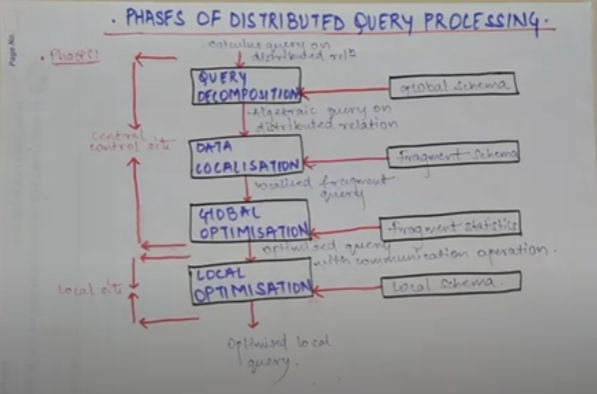 Page No.
. PHASES OF DISTRIBUTED QUERY PROCESSING.
. Phases:
calculus query on
distributed relⁿ
QUERY
DECOMPOSITION
global schema
Algebraic query on
distributed relation
Central
control site
DATA
LOCALISATION
fragment schema
localised fragment
query
GLOBAL
OPTIMISATION
fragment statistics
optimised query
with communication operation.
Local site
LOCAL
OPTIMISATION
Local schema.
Optimised local
query.